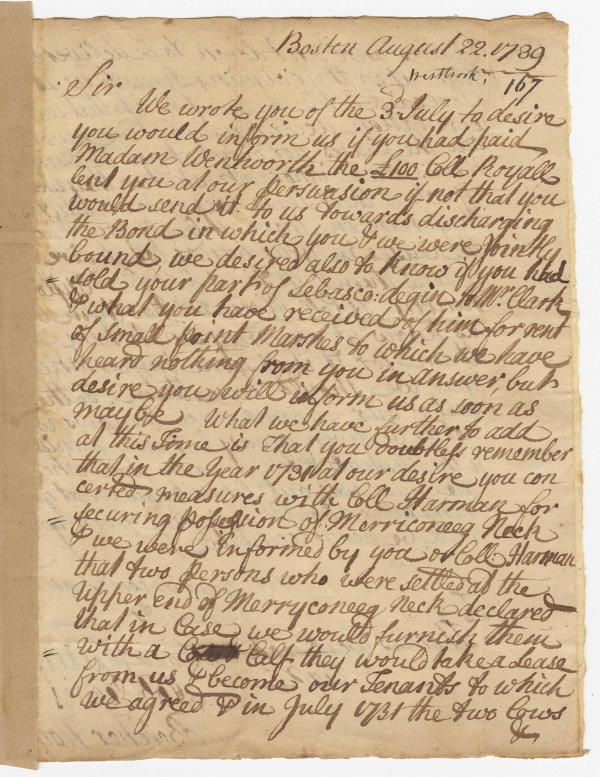 Boston August 22. 1739
Westbrook,
167
Sir
We wrote you of the 3d July to desire
you would inform us if you had paid
Madam Wentworth the £100 Coll Royall
lent you at our perswasion if not that you
would send it to us towards discharging
the Bond in which you & we were Jointly
bound, we desired also to know if you had
sold your part of Sebasco:degin to Mr. Clark
& what you have received of him for rent
of Small point Marshes to which we have
heard nothing from you in answer, but
desire you will inform us as soon as
maybe What we have further to add
at this Time is That you doubtless remember
that in the Year 1731 at our desire you con
certed measures with Coll Harman for
securing possession of Merriconeeg Neck
& we were informed by you or Coll: Harman
that two persons who were settled at the
upper end of Merryconeeg Neck declared
that in Case we would furnish them
with a Calf they would take a Lease
from us & become our Tenants to which
we agreed & in July 1731 the two Cows
&